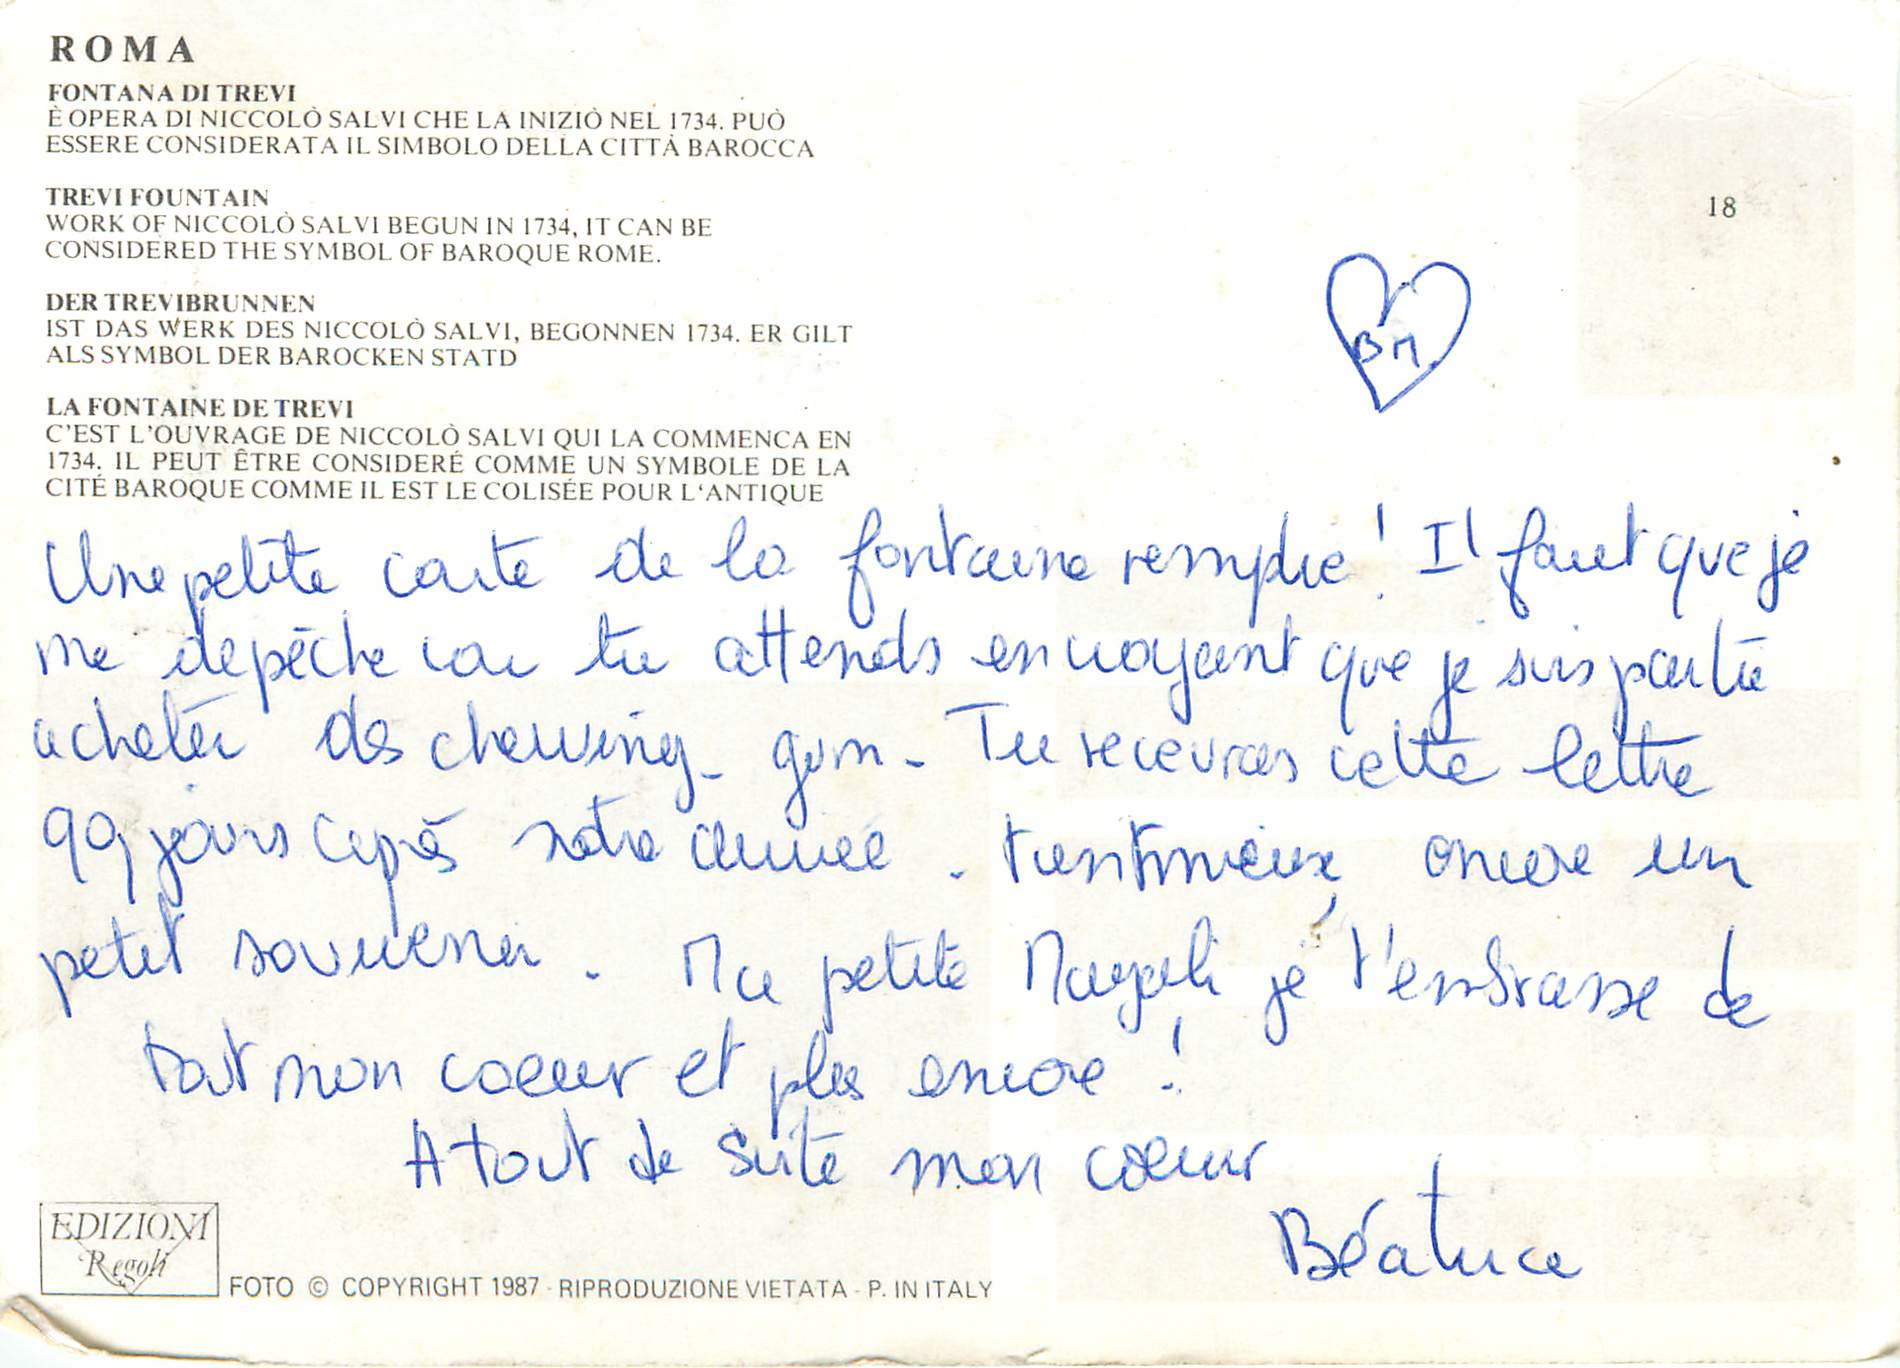 ROMA
FONTANA DI TREVI
È OPERA DI NICCOLÒ SALVI CHE LA INIZIÒ NEL 1734. PUÒ
ESSERE CONSIDERATA IL SIMBOLO DELLA CITTÀ BAROCCA
TREVI FOUNTAIN
WORK OF NICCOLÒ SALVI BEGUN IN 1734, IT CAN BE
CONSIDERED THE SYMBOL OF BAROQUE ROME.
DER TREVIBRUNNEN
IST DAS WERK DES NICCOLÒ SALVI, BEGONNEN 1734. ER GILT
ALS SYMBOL DER BAROCKEN STATD
LA FONTAINE DE TREVI
C'EST L'OUVRAGE DE NICCOLÒ SALVI QUI LA COMMENCA EN
1734. IL PEUT ÊTRE CONSIDERÉ COMME UN SYMBOLE DE LA
CITÉ BAROQUE COMME IL EST LE COLISÉE POUR L'ANTIQUE
18
BM
Une petite carte de la fontaine remplie! Il faut que je
me depèche car tu attends en croyant que je suis partie
acheter des chewing-gum. Tu recevras cette lettre
99 jours après notre arrivée. tant mieux, encore un
petit souvenir. Ma petite Magali je t'embrasse de
tout mon coeur et plus encore!
A tout de suite mon coeur
Béatrice
EDIZIONI
Regoli
FOTO © COPYRIGHT 1987 - RIPRODUZIONE VIETATA - P. IN ITALY